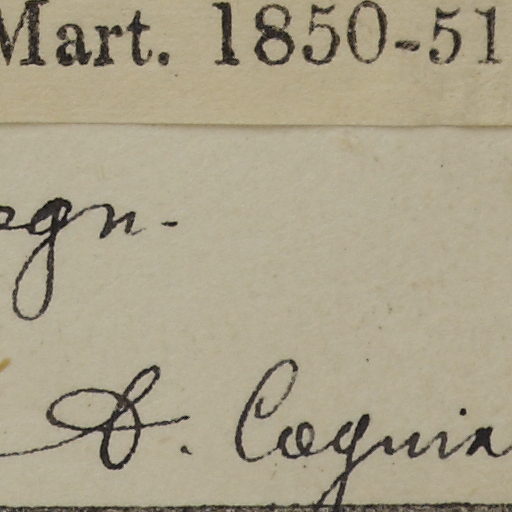 Mart. 1850-51
ogn.
A. Cognia